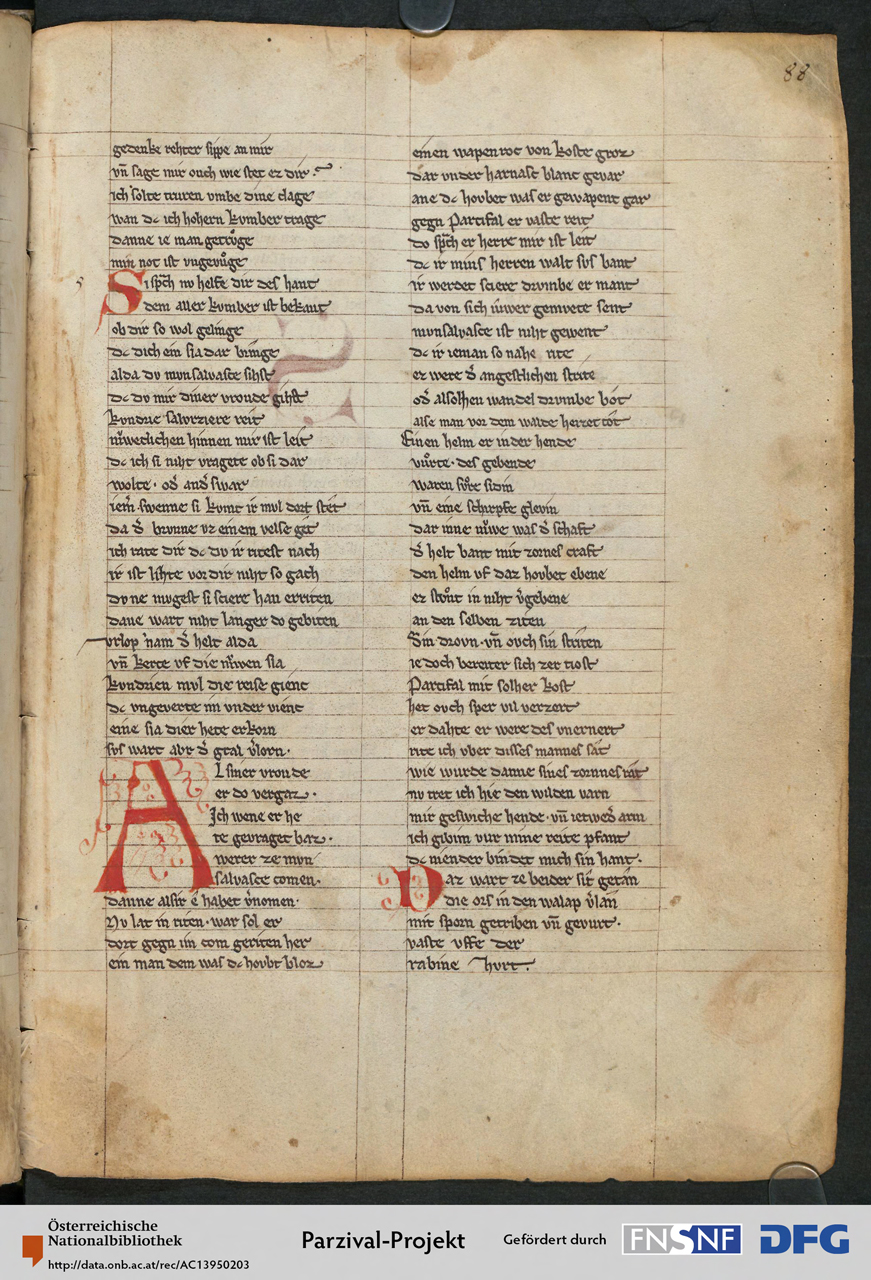 88
gedenke rehter sippe an mir
vn̄ sage mir ouch wie stet ez dir.
ich solte truren vmbe dine clage
wan dc ich hohern kvmber trage
danne ie man getrůge
min not ist vngevůge
Si sp̄ch nv helfe dir des hant
dem aller kvmber ist bekant
ob dir so wol gelinge
dc dich ein sla dar bringe
alda dv mvnsalvasce sihst
dc dv mir diner vrovde gihst
kvndrie salvrziere reit
niwelichen hinnen mir ist leit
dc ich si niht vragete ob si dar
wolte. od̾ and̾swar
iem̄. swenne si kvmt ir mvl dort stet
da d̾ brvnne vz einem velse get
ich rate dir dc dv ir ritest nach
ir ist lihte vor dir niht so gach
dv ne mvgest si sciere han erriten
dane wart niht langer do gebiten
vrlop nam d̾ helt alda
vn̄ kerte vf die niwen sla
kvndrien mvl die reise gienc
dc vngeverte im vnder vienc
eine sla dier hete erkorn
svs wart abr d̾ gral v̾lorn.
Al siner vrovde
er do vergaz.
Ich wene er he
te gevraget baz.
werer ze mvn
salvasce comen.
danne alsir é habet v̾nomen.
Nv lat in riten. war sol er
dort gegn im com geriten her
ein man dem was dc hovbt bloz
einen wapenroc von koste groz
dar vnder harnasc blanc gevar
ane dc hovbet was er gewapent gar
gegn Partifal er vaste reit
do sp̄ch er herre mir ist leit
dc ir mins herren walt svs bant
ir werdet sciere drvmbe er mant
da von sich iwer gemvete sent
mvnsalvasce ist niht gewent
dc ir ieman so nahe rite
ez were d̾ angestlichen strite
od̾ alsolhen wandel drvmbe bôt
alse man vor dem walde heizet tôt
Einen helm er in der hende
vůrte. des gebende
waren snv̊re sidin
vn̄ eine scharpfe glevin
dar inne niwe was d̾ schaft
d̾ helt bant mit zornes craft
den helm vf daz hovbet ebene
ez stont in niht v̾gebene
an den selben ziten
Sin drovn. vn̄ ovch sin striten
iedoch bereiter sich zer tiost
Partifal mit solher kost
het ovch sper vil verzert
er dahte er were des vnernert
rite ich vber disses mannes sât
wie wurde danne sines zornnes rât
nv tret ich hie den wilden varn
mir geswiche hende. vn̄ ietwed̾ arm
ich gibim vur mine reite pfant
dc niender bindet mich sin hant.
Daz wart ze beider sit getân
die ors in den walap v̾lân
mit sporn getriben vn̄ gevurt.
vaste vffe der
rabine hvrt.
Österreichische
Nationalbibliothek
http://data.onb.ac.at/rec/AC13950203
Parzival-Projekt
Gefördert durch
FNSNF
DFG